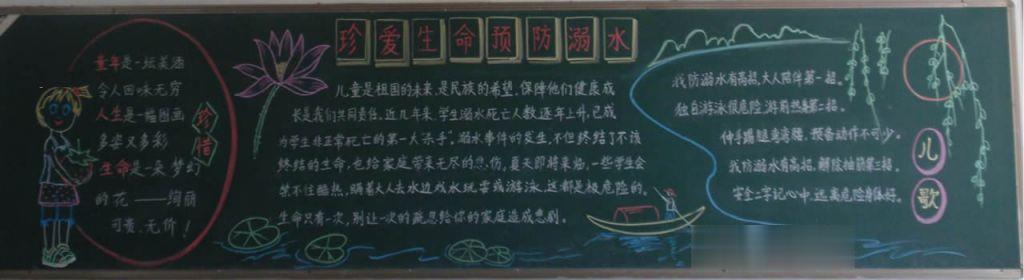 珍爱生命预防溺水
童年是一坛美酒
令人回味无穷
人生是一幅图画
多姿又多彩
生命是一朵梦幻
的花——绚丽
可贵、无价！
珍惜
儿童是祖国的未来,是民族的希望,保障他们健康成
长是我们共同责任.近几年来,学生溺水死亡人数逐年上升,已成
为学生非正常死亡的第一大杀手".溺水事件的发生,不但终结了不该
终结的生命,也给家庭带来无尽的悲伤,夏天即将来临,一些学生会
禁不住酷热,瞒着大人去水边戏水玩耍或游泳,这都是极危险的.
生命只有一次,别让一次的疏忽给你的家庭造成悲剧.
我防溺水有高招,大人陪伴第一招.
独自游泳很危险,游前热身第二招.
伸手踢腿弯弯腰,预备动作不可少.
我防溺水有高招,解除抽筋第三招.
安全二字记心中,远离危险身体好.
儿歌